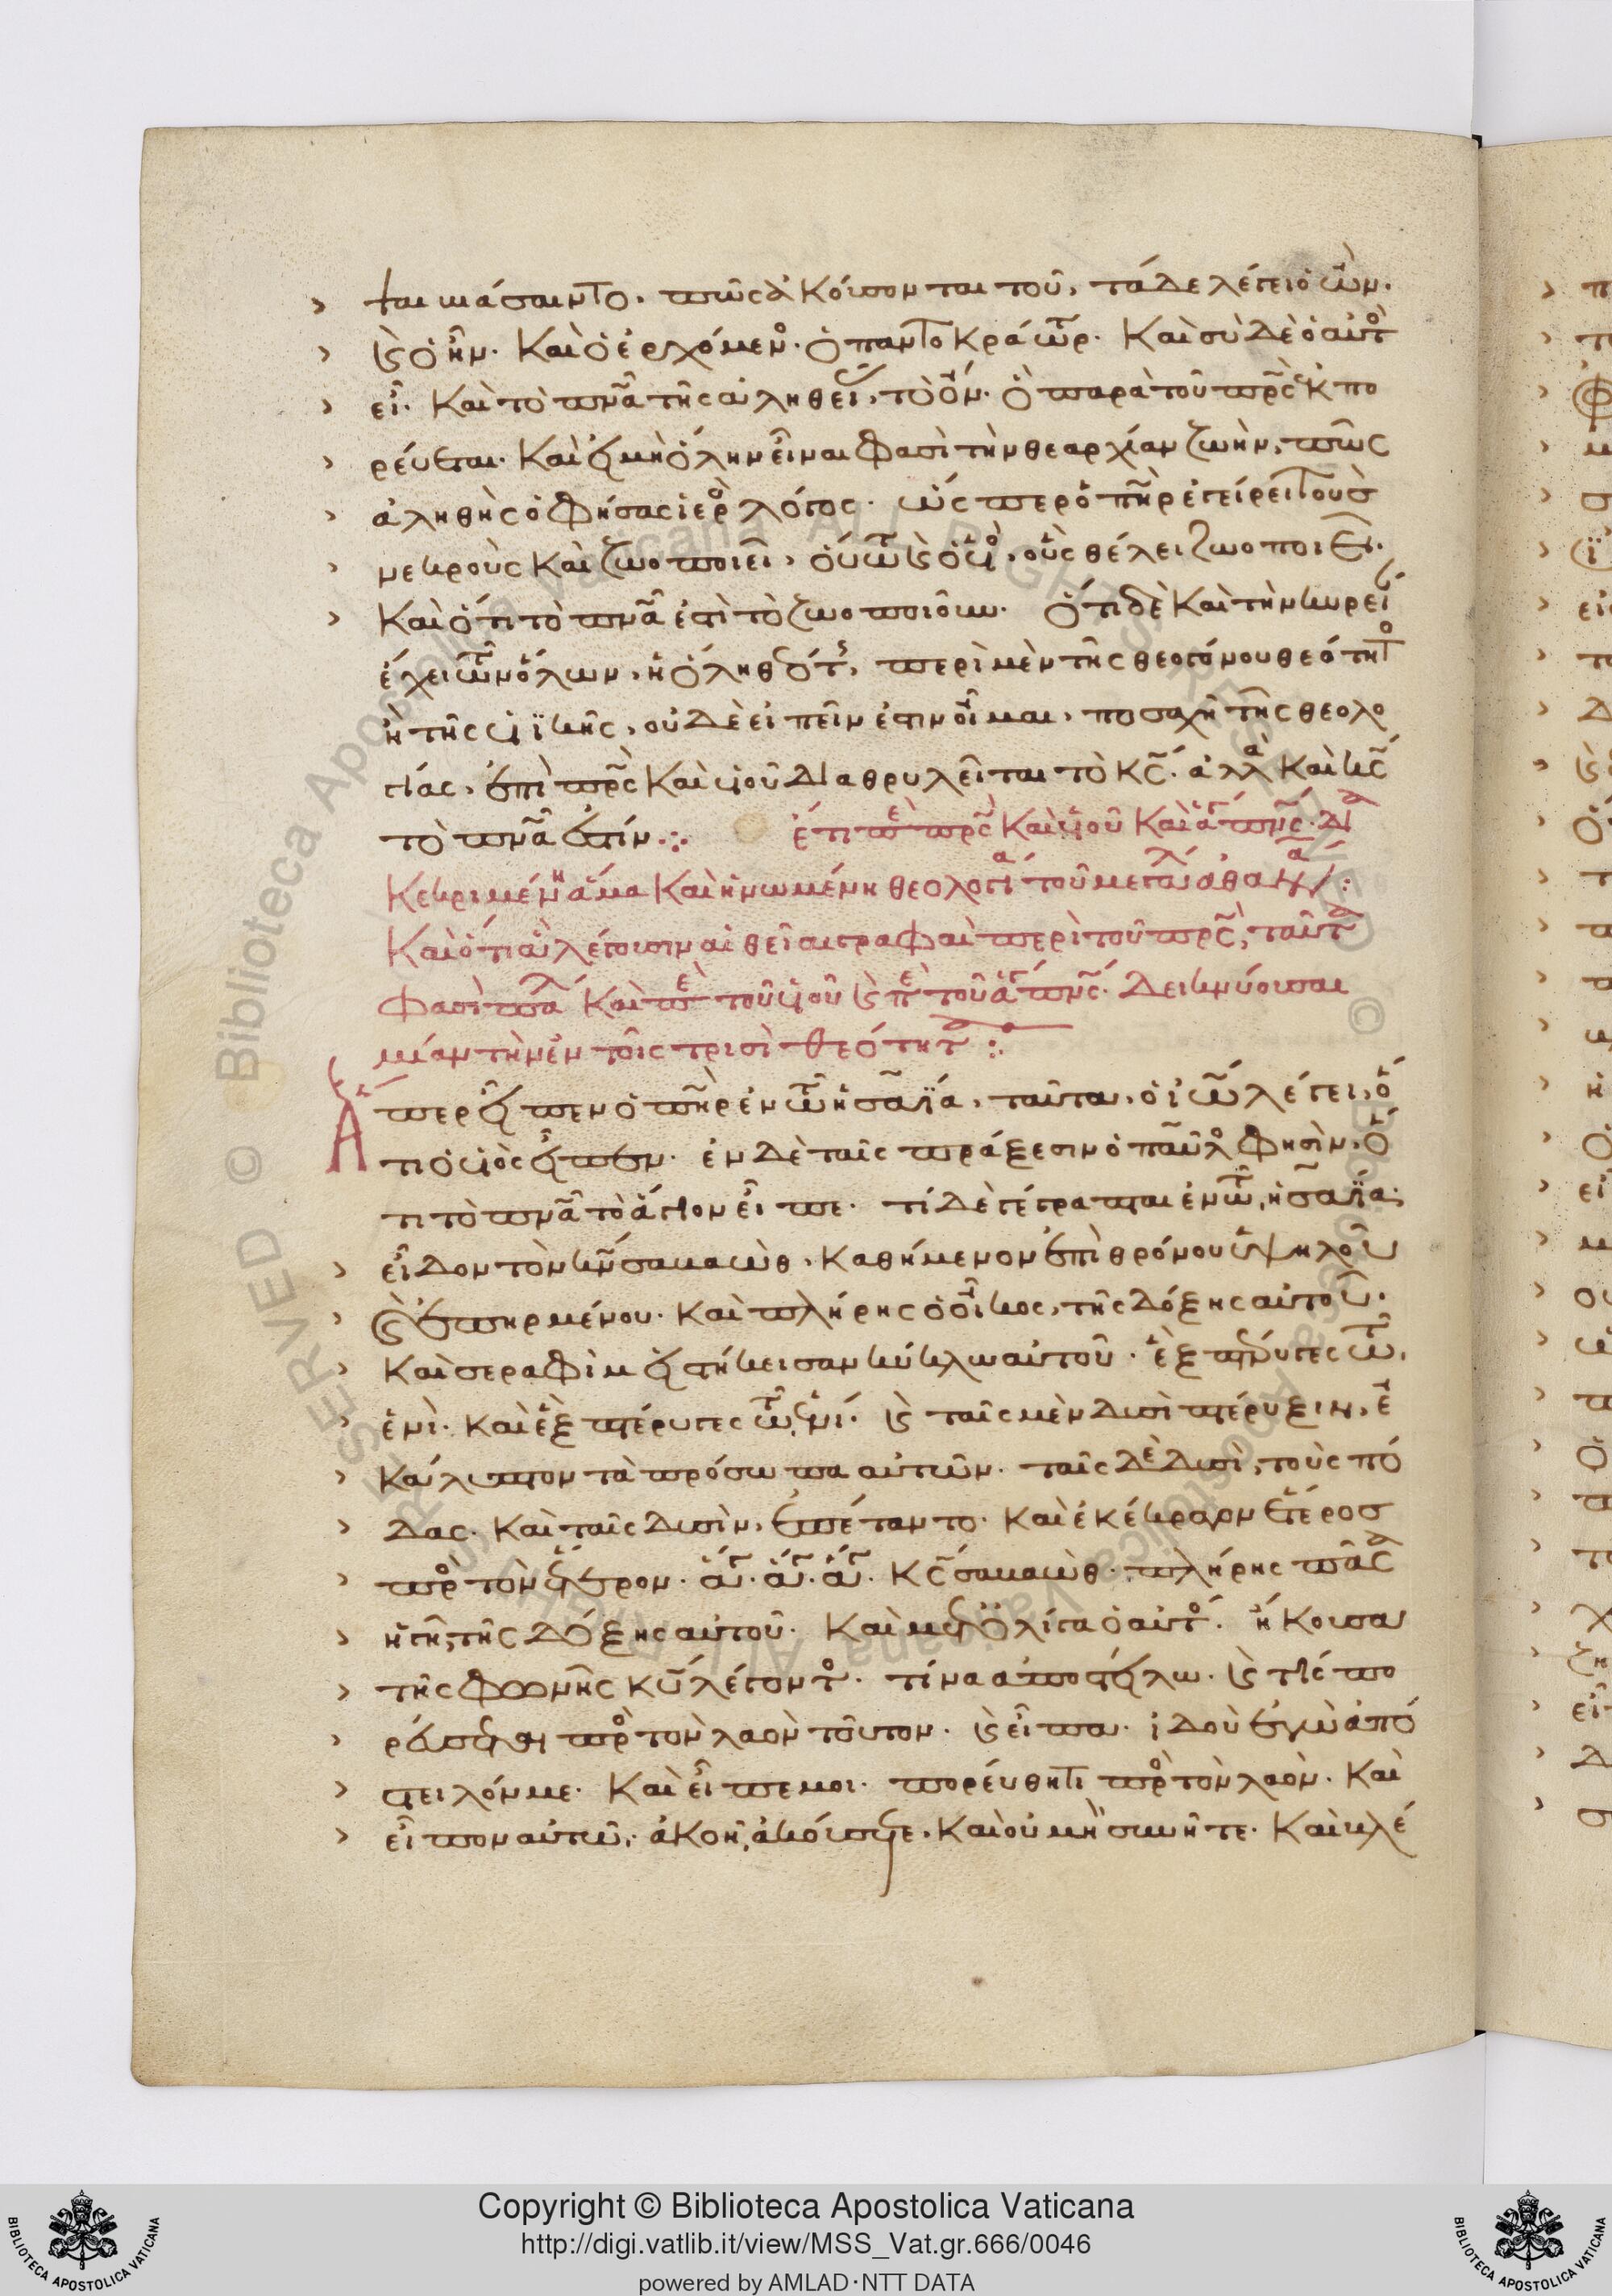 ται πάσαιντο. πῶς ἀκούσονται τοῦ, τάδε λέγει ὁ ὤν.
κ(αὶ) ὁ ἦν. καὶ ὁ ἐρχόμεν(ος). ὁ παντοκράτωρ. καὶ σὺ δὲ ὁ αὐτὸ(ς)
εἶ. καὶ τὸ πνᾶ τῆς ἀληθεί(ας), τὸ ὄν. ὃ παρὰ τοῦ πρς ἐκπο
ρεύεται. καὶ εἰ μὴ ὅλην εἶναι φασὶ τὴν θεαρχίαν ζωὴν, πῶς
ἀληθὴς ὁ φήσας ἱερὸ(ς) λόγος. ὥσπερ ὁ πηρ ἐγείρει τοὺσ
νεκροὺς καὶ ζωοποιεῖ, οὕτω κ(αὶ) ὁ υἱὸ(ς), οὓς θέλει ζωοποιεῖ.
καὶ ὅτι τὸ πνᾶ ἐστὶ τὸ ζωοποιοῦν. ὅτι δὲ καὶ τὴν κυρεί(αν)
ἔχει τῶν ὅλων, ἡ ὅλη θεότης, περὶ μὲν τῆς θεογόνου θεότητο(ς)
ἢ τῆς υἱϊκῆς, οὐδὲ εἰπεῖν ἐστιν οἶμαι, ποσαχῆ τῆς θεολο
γίας, ἐπὶ πρς καὶ υἱοῦ διαθρυλεῖται τὸ κς. ἀλλὰ καὶ κς
τὸ πνᾶ ἐστίν.:
ἔτι πε(ρὶ) πρς καὶ υἱοῦ καὶ ἁγ(ίου) πνς. δια
κεκριμένη ἅμα καὶ ἡνωμένη θεολογία τοῦ μεγάλ(ου) ἀθανα(σίου):
καὶ ὅτι ἃ λέγουσιν αἱ θεῖαι γραφαὶ περὶ τοῦ πρς, ταῦτα
φασὶ πάλ(ιν) καὶ πε(ρὶ) τοῦ υἱοῦ κ(αὶ) πε(ρὶ) τοῦ ἁγ(ίου) πνς. δεικνύουσαι
μίαν τὴν ἐν τοῖς τρισὶ θεότητα:
Ἅπερ εἶπεν ὁ πηρ ἐν τῶ ἡσαΐα, ταῦτα, ὁ ἰω λέγει, ὅ
τι ὁ υἱὸς εἶπεν. ἐν δὲ ταῖς πράξεσιν ὁ παῦλο(ς) φησὶν, ὅ
τι τὸ πνᾶ τὸ ἅγιον εἶπε. τί δὲ γέγραπται ἐν τῶ ἡσαΐα;
εἶδον τὸν κν σαβαὼθ, καθήμενον ἐπὶ θρόνου ὑψηλοῦ
κ(αὶ) ἐπηρμένου. καὶ πλήρης ὁ οἶκος, τῆς δόξης αὐτοῦ.
καὶ σεραφὶμ εἱστήκεισαν κύκλω αὐτοῦ. ἓξ πτέρυγες τῶ
ἑνὶ. καὶ ἓξ πτέρυγες τῶ ἑνί. κ(αὶ) ταῖς μὲν δυσὶ πτέρυξιν, ἐ
κάλυπτον τὰ πρόσωπα αὐτῶν. ταῖς δὲ δυσὶ, τοὺς πό
δας. καὶ ταῖς δυσὶν, ἐπέταντο. καὶ ἐκέκραγον ἕτεροσ
πρὸ(ς) τὸν ἕτερον. ἅγ(ιος). ἅγ(ιος). ἅγ(ιος). κς σαβαὼθ. πλήρης πᾶσα
ἡ γῆ, τῆς δόξης αὐτοῦ. καὶ μετ' ὀλίγα ὁ αὐτό(ς). ἤκουσα
τῆς φωνῆς κυ λέγοντο(ς). τίνα ἀποστείλω. κ(αὶ) τίς πο
ρεύσεται πρὸ(ς) τὸν λαὸν τοῦτον. κ(αὶ) εἶπα. ἰδοὺ ἐγὼ ἀπό
στειλόν με. καὶ εἶπέ μοι. πορεύθητι πρὸ(ς) τὸν λαὸν. καὶ
εἶπον αὐτῶ. ἀκοῆ, ἀκούσετε, καὶ οὐ μὴ συνῆτε. καὶ βλέ
Copyright © Biblioteca Apostolica Vaticana
http://digi.vatlib.it/view/MSS_Vat.gr.666/0046
powered by AMLAD·NTT DATA
BIBLIOTECA APOSTOLICA VATICANA
BIBLIOTECA APOSTOLICA VATICANA